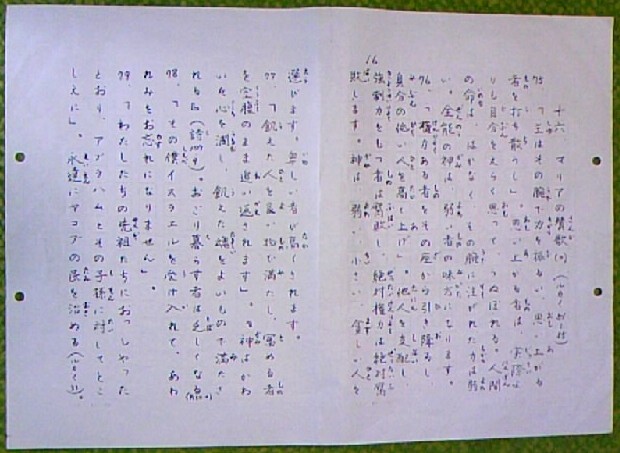 十六、マリアの賛歌
75 「主はその腕で力を振るい、思い上がる
者を打ち散らし」。思い上がる者は、実際よ
りも自分をえらく思って、うぬぼれる。人間
の命は、はかなく、その腕に注がれた力は弱
い。全能の神は、弱い者の味方になります。
76、「権力ある者をその座から引き降ろし
身分の低い人を高く上げ」。他人を支配し、
強制力をもつ者は腐敗し、絶対権力は絶対腐
敗します。神は、弱い、小さい、貧しい人を
選びます。無しい者が高くされます。
77、「飢えた人を良い物で満たし、富める者
を空腹のまま追い返されます」。
いた心を潤し、飢えた魂をよいもので満たさ
れる。おごり暮らす者は乏しくなる
78、「その僕イスラエルを受け入れて、あわ
れみをお忘れになりません」。
79、「わたしたちの先祖たちにおっしゃった
とおり、アブラハムとその子孫に対してとこ
しえに」。永遠にヤコブの民を治める
16